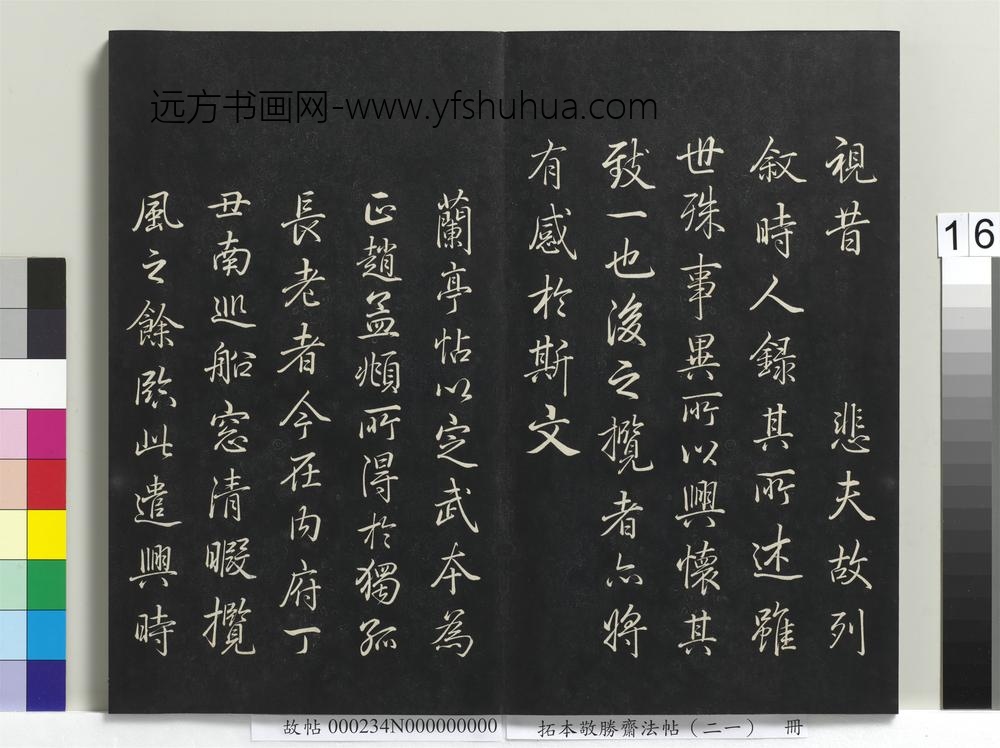 远方书画网-www.yfshuhua.com
視昔 悲夫故列
叙時人録其所述雖
世殊事異所以興懷其
致一也後之攬者亦将
有感於斯文
蘭亭帖以定武本為
正趙孟頫所得於獨孤
長老者今在内府丁
丑南巡船窓清暇攬
風之餘臨此遣興時
16
故帖 000234N000000000
拓本敬勝齋法帖(二一) 冊